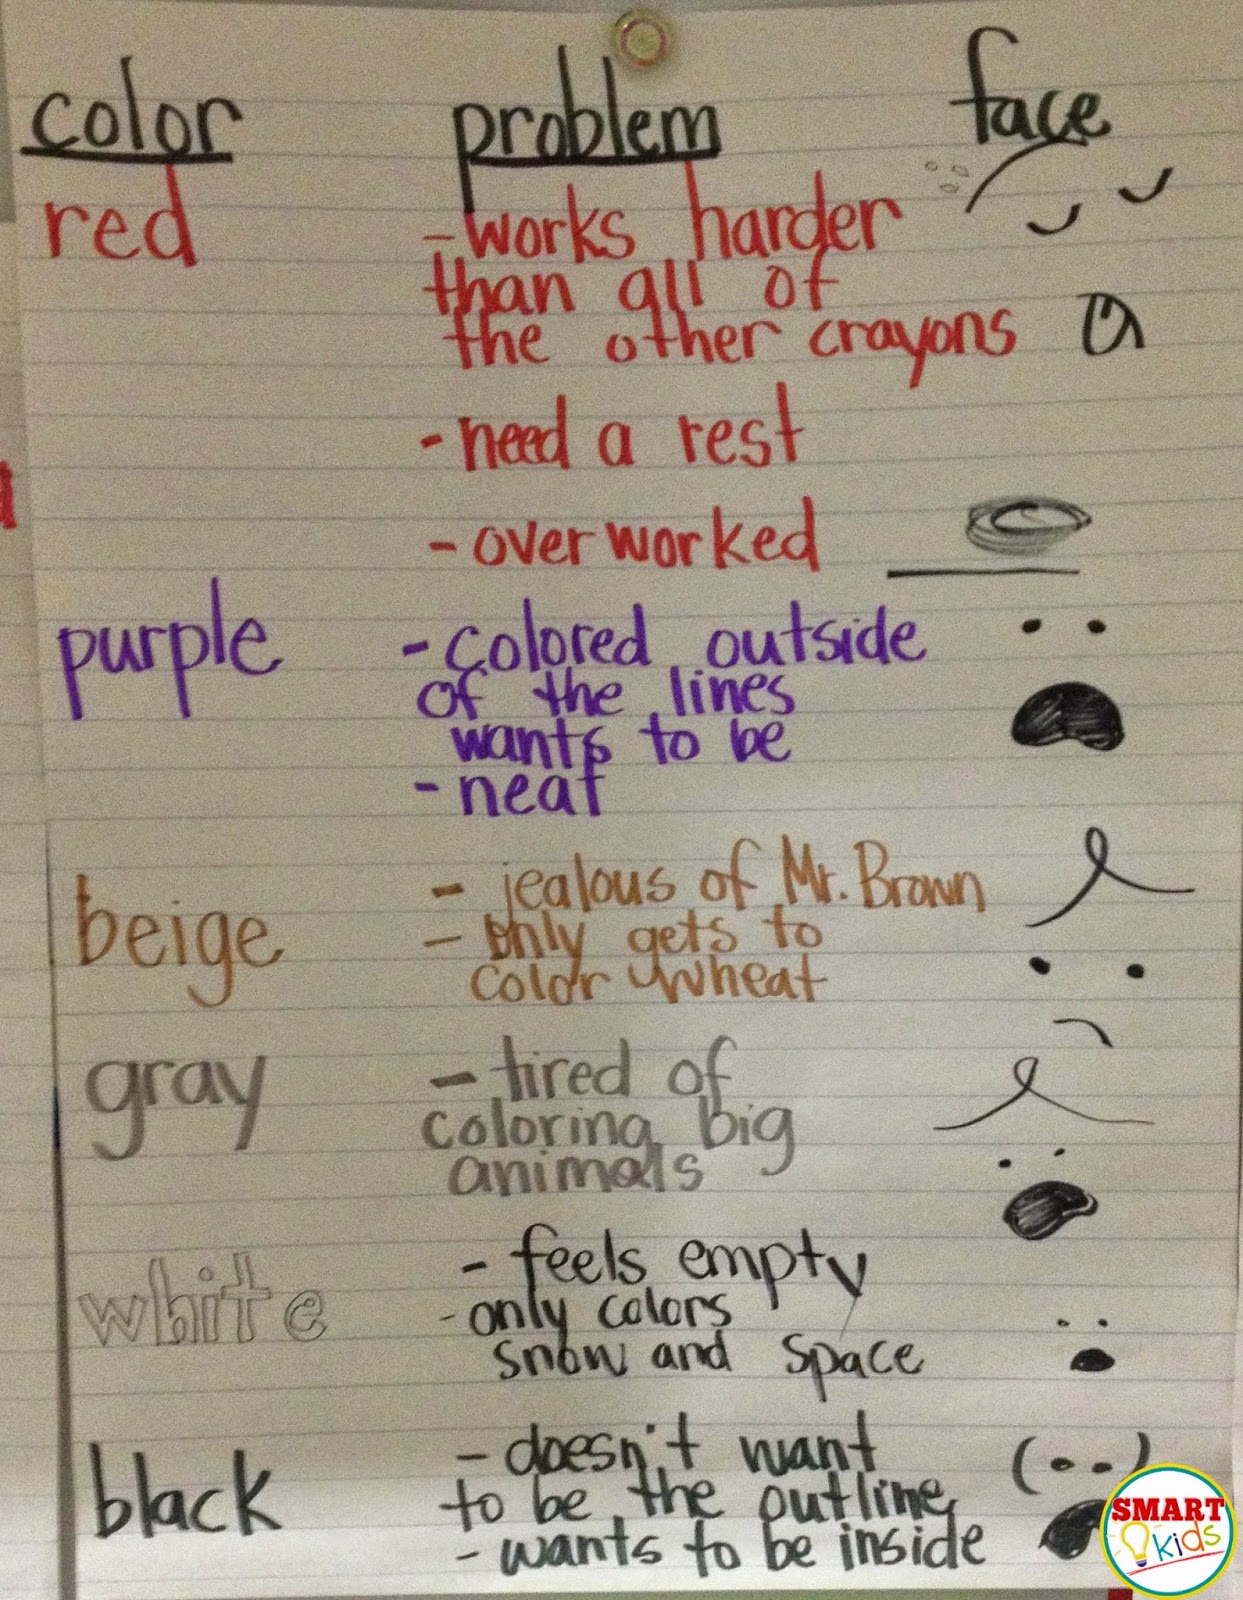 color problem face
red - works harder
than all of
the other crayons
- need a rest
- overworked
purple - colored outside
of the lines
wants to be
- neat
beige - jealous of Mr. Brown
- only gets to
color wheat
gray - tired of
coloring big
animals
white - feels empty
- only colors
snow and space
black - doesn't want
to be the outline
- wants to be inside
SMART
kids